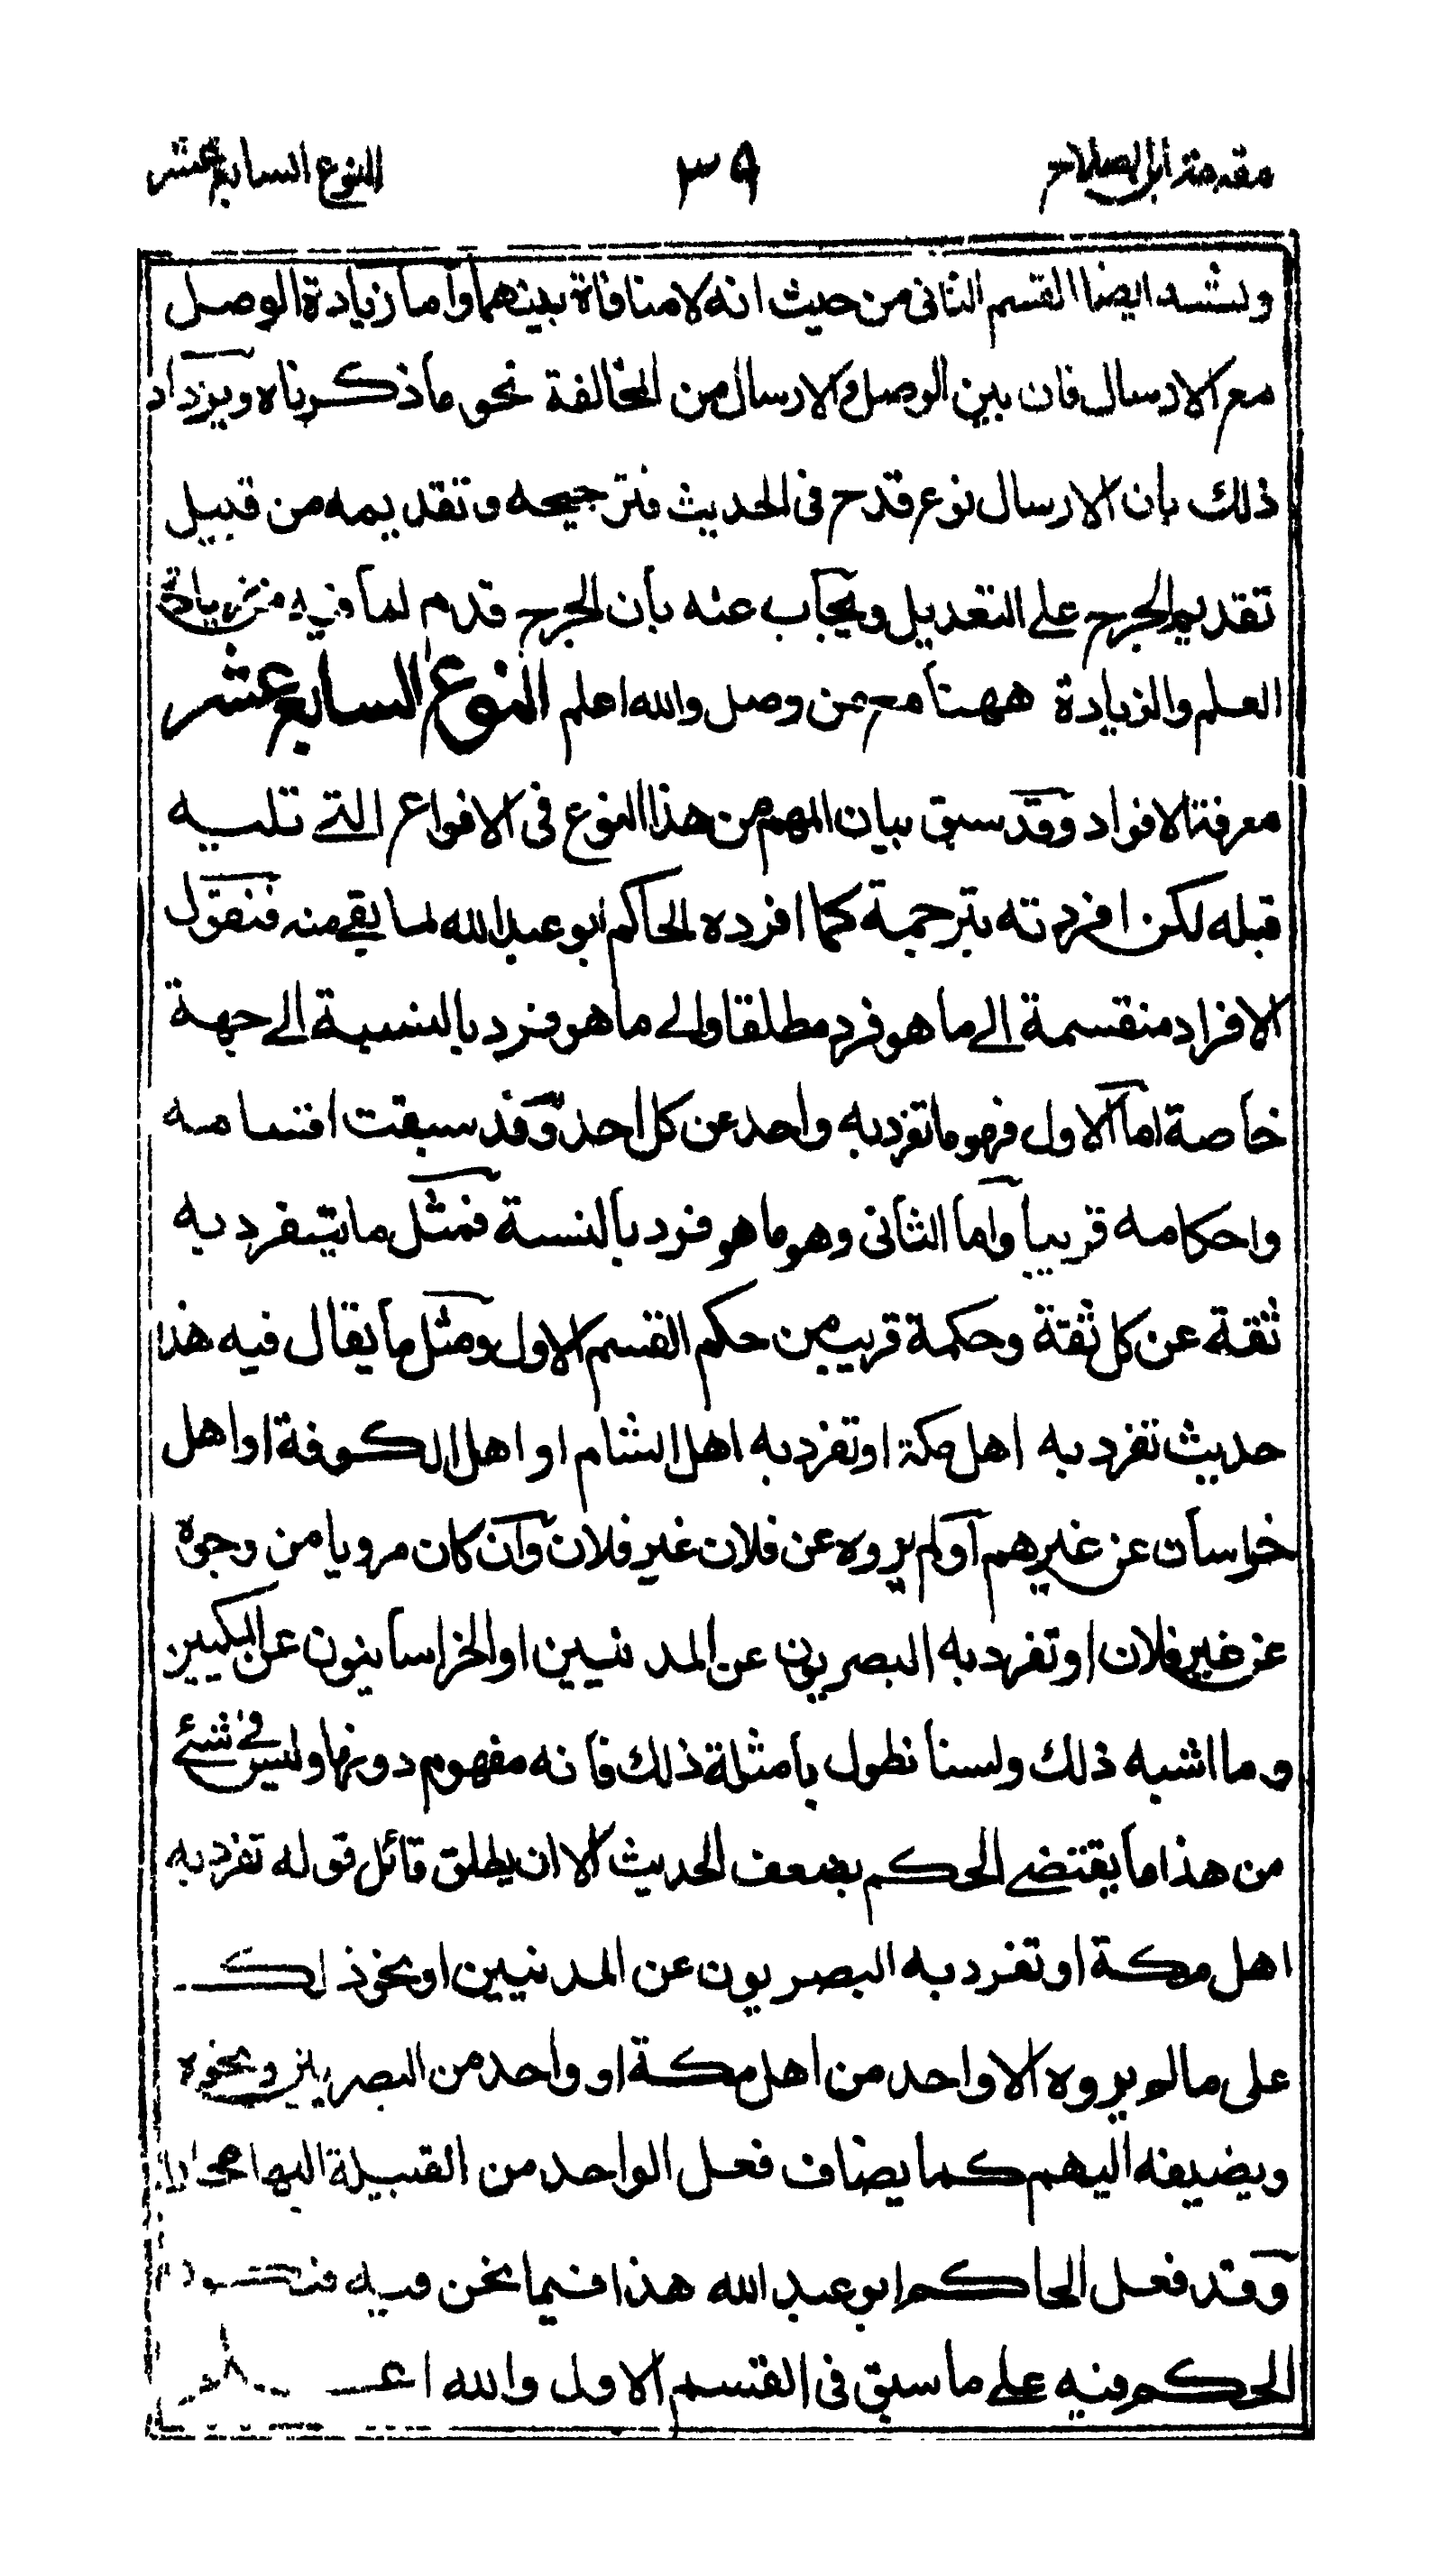 مقدمة ابن الصلاح ٣٩ النوع السابع عشر
ويشبه ايضا القسم الثانى من حيث انه لا منافاة بينهما وأما زيادة الوصل
مع الارسال فان بين الوصل والارسال من المخالفة نحو ما ذكرناه ويزداد
ذلك بان الارسال نوع قدح فى الحديث فترجيحه وتقديمه من قبيل
تقديم الجرح على التعديل ويجاب عنه بأن الجرح قدم لما فيه من زيادة
العلم والزيادة ههنا مع من وصل والله اعلم النوع السابع عشر
معرفة الافراد وقد سبق بيان المهم من هذا النوع فى الانواع التى تليه
قبله لكن افردته بترجمة كما افرده الحاكم ابو عبد الله لما بقى منه فنقول
الافراد منقسمة الى ما هو فرد مطلقا والى ما هو فرد بالنسبة الى جهة
خاصة اما الاول فهو ما تفرد به واحد عن كل احد وقد سبقت اقسامه
واحكامه قريبا واما الثانى وهو ما هو فرد بالنسبة فمثل ما يتفرد به
ثقة عن كل ثقة وحكمة قريب من حكم القسم الاول ومثل ما يقال فيه هذا
حديث تفرد به اهل مكة او تفرد به اهل الشام او اهل الكوفة او اهل
خراسان عن غيرهم او لم يروه عن فلان غير فلان وان كان مرويا من وجوه
عن غير فلان او تفرد به البصريون عن المدنيين او الخراسانيون عن المكيين
وما اشبه ذلك ولسنا نطول بامثلة ذلك فانه مفهوم دونها وليس فى شئ
من هذا ما يقتضى الحكم بضعف الحديث الا ان يطلق قائل قوله تفرد به
اهل مكة او تفرد به البصريون عن المدنيين او نحو ذلك
على ما لم يروه الا واحد من اهل مكة او واحد من البصريين ونحوه
ويضيفه اليهم كما يضاف فعل الواحد من القبيلة اليها مجازا
وقد فعل الحاكم ابو عبد الله هذا فيما نحن فيه فيكون
الحكم فيه على ما سبق فى القسم الاول والله اعلم